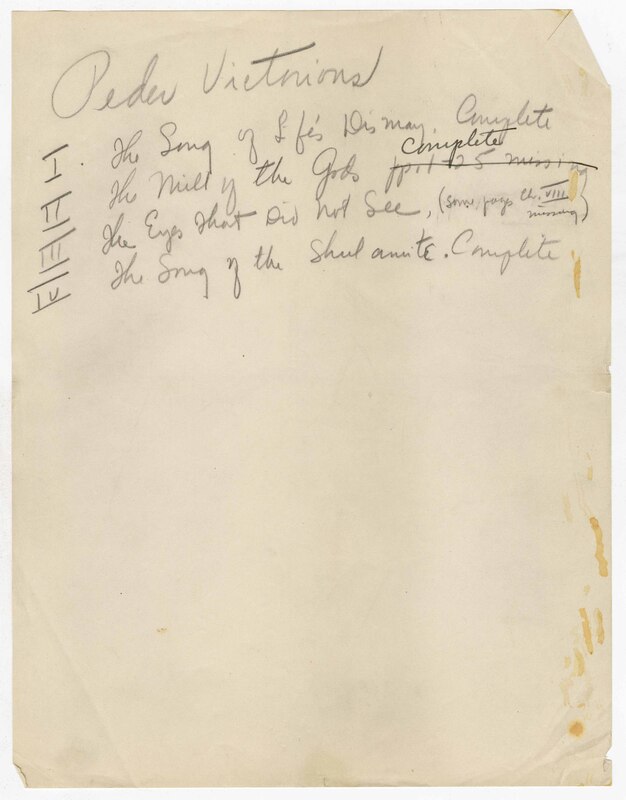 Peder Victorious
I The Song of Life's Dismay. Complete
II The Mill of the Gods pp. 1-25 missing Complete
III The Eyes that Did not See, (some pags Ch. VIII missing)
IV The Song of the Shulamite. Complete